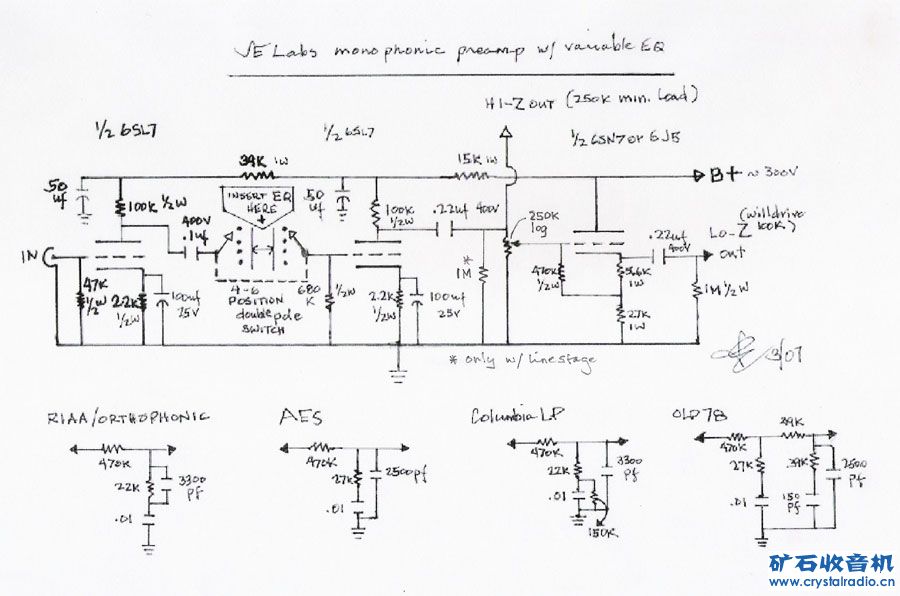 VE Labs monophonic preamp w/ variable EQ
HI-Z OUT (250K min. load)
1/2 6SL7
1/2 6SL7
1/2 6SN7 or 6J5
39K 1W
15K 1W
B+ ~ 300V
.50 uf
100K 1/2W
INSERT EQ HERE
.50 uf
100K 1/2W
.22uf 400V
250K log
Lo-Z (will drive 100K)
out
400V .1uf
.22uf 400V
IN
* 1M
470K 1/2W
5.6K 1W
47K 1/2W
2.2K 1/2W
100uf 25V
4-6 POSITION double pole SWITCH
680K 1/2W
2.2K 1/2W
100uf 25V
27K 1W
1M 1/2W
* only w/ linestage
3/07
RIAA/ORTHOPHONIC
AES
Columbia LP
OLD 78
470K
22K
3300 pf
.01
470K
27K
2500pf
.01
470K
22K
3300 pf
.01
150K
470K
39K
27K
39K
2500 pf
.01
150 pf
矿石收音机
www.crystalradio.cn